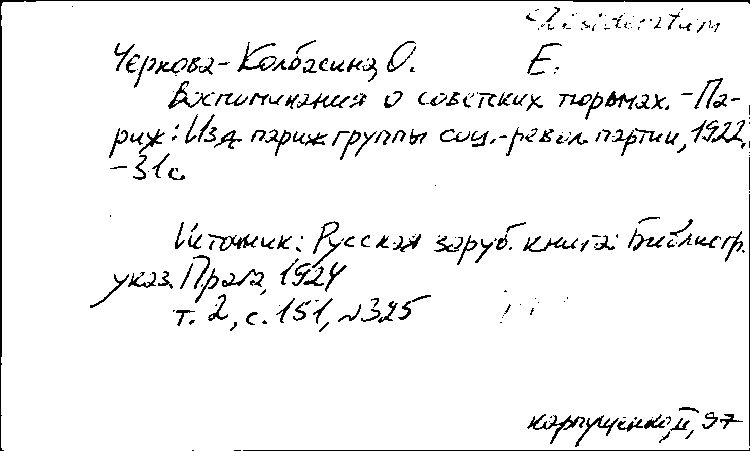 Desideratum
Чернова-Колбасина, О. Е.
Воспоминания о советских тюрьмах. -Па-
риж: Изд. париж группы соц.-револ. партии, 1922.
-31с.
Источник: Русская заруб. книга: Библиогр.
указ. Прага, 1924
т. 2, с. 151, №325
карпущенко, II, 97